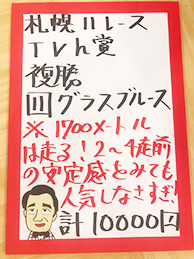 札幌11レース
TVh賞
複勝
11 グラスブルース
※1700メートル
は走る！2～4走前
の安定感をみても
人気しなさすぎ！
計10000円